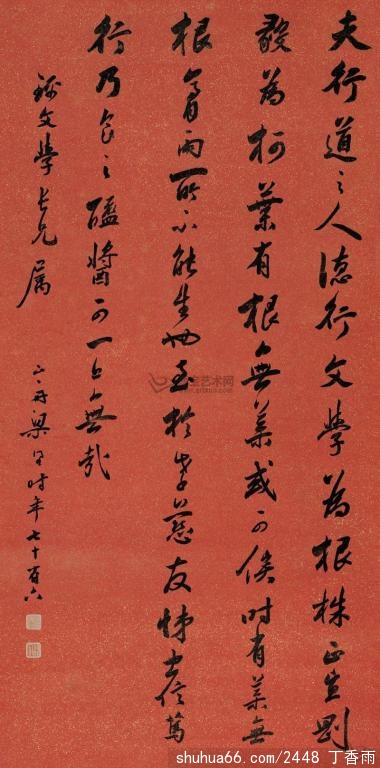 夫行道之人德行文學為根株正直剛
毅為柯葉有根無葉或可俟時有葉無
根膏雨所不能生也至於孝慈友悌忠信篤
行乃食之醯醬可一日無哉
文學長兄属
山舟梁同書时年七十有六
艺术网
shuhua66.com/2448 丁香雨